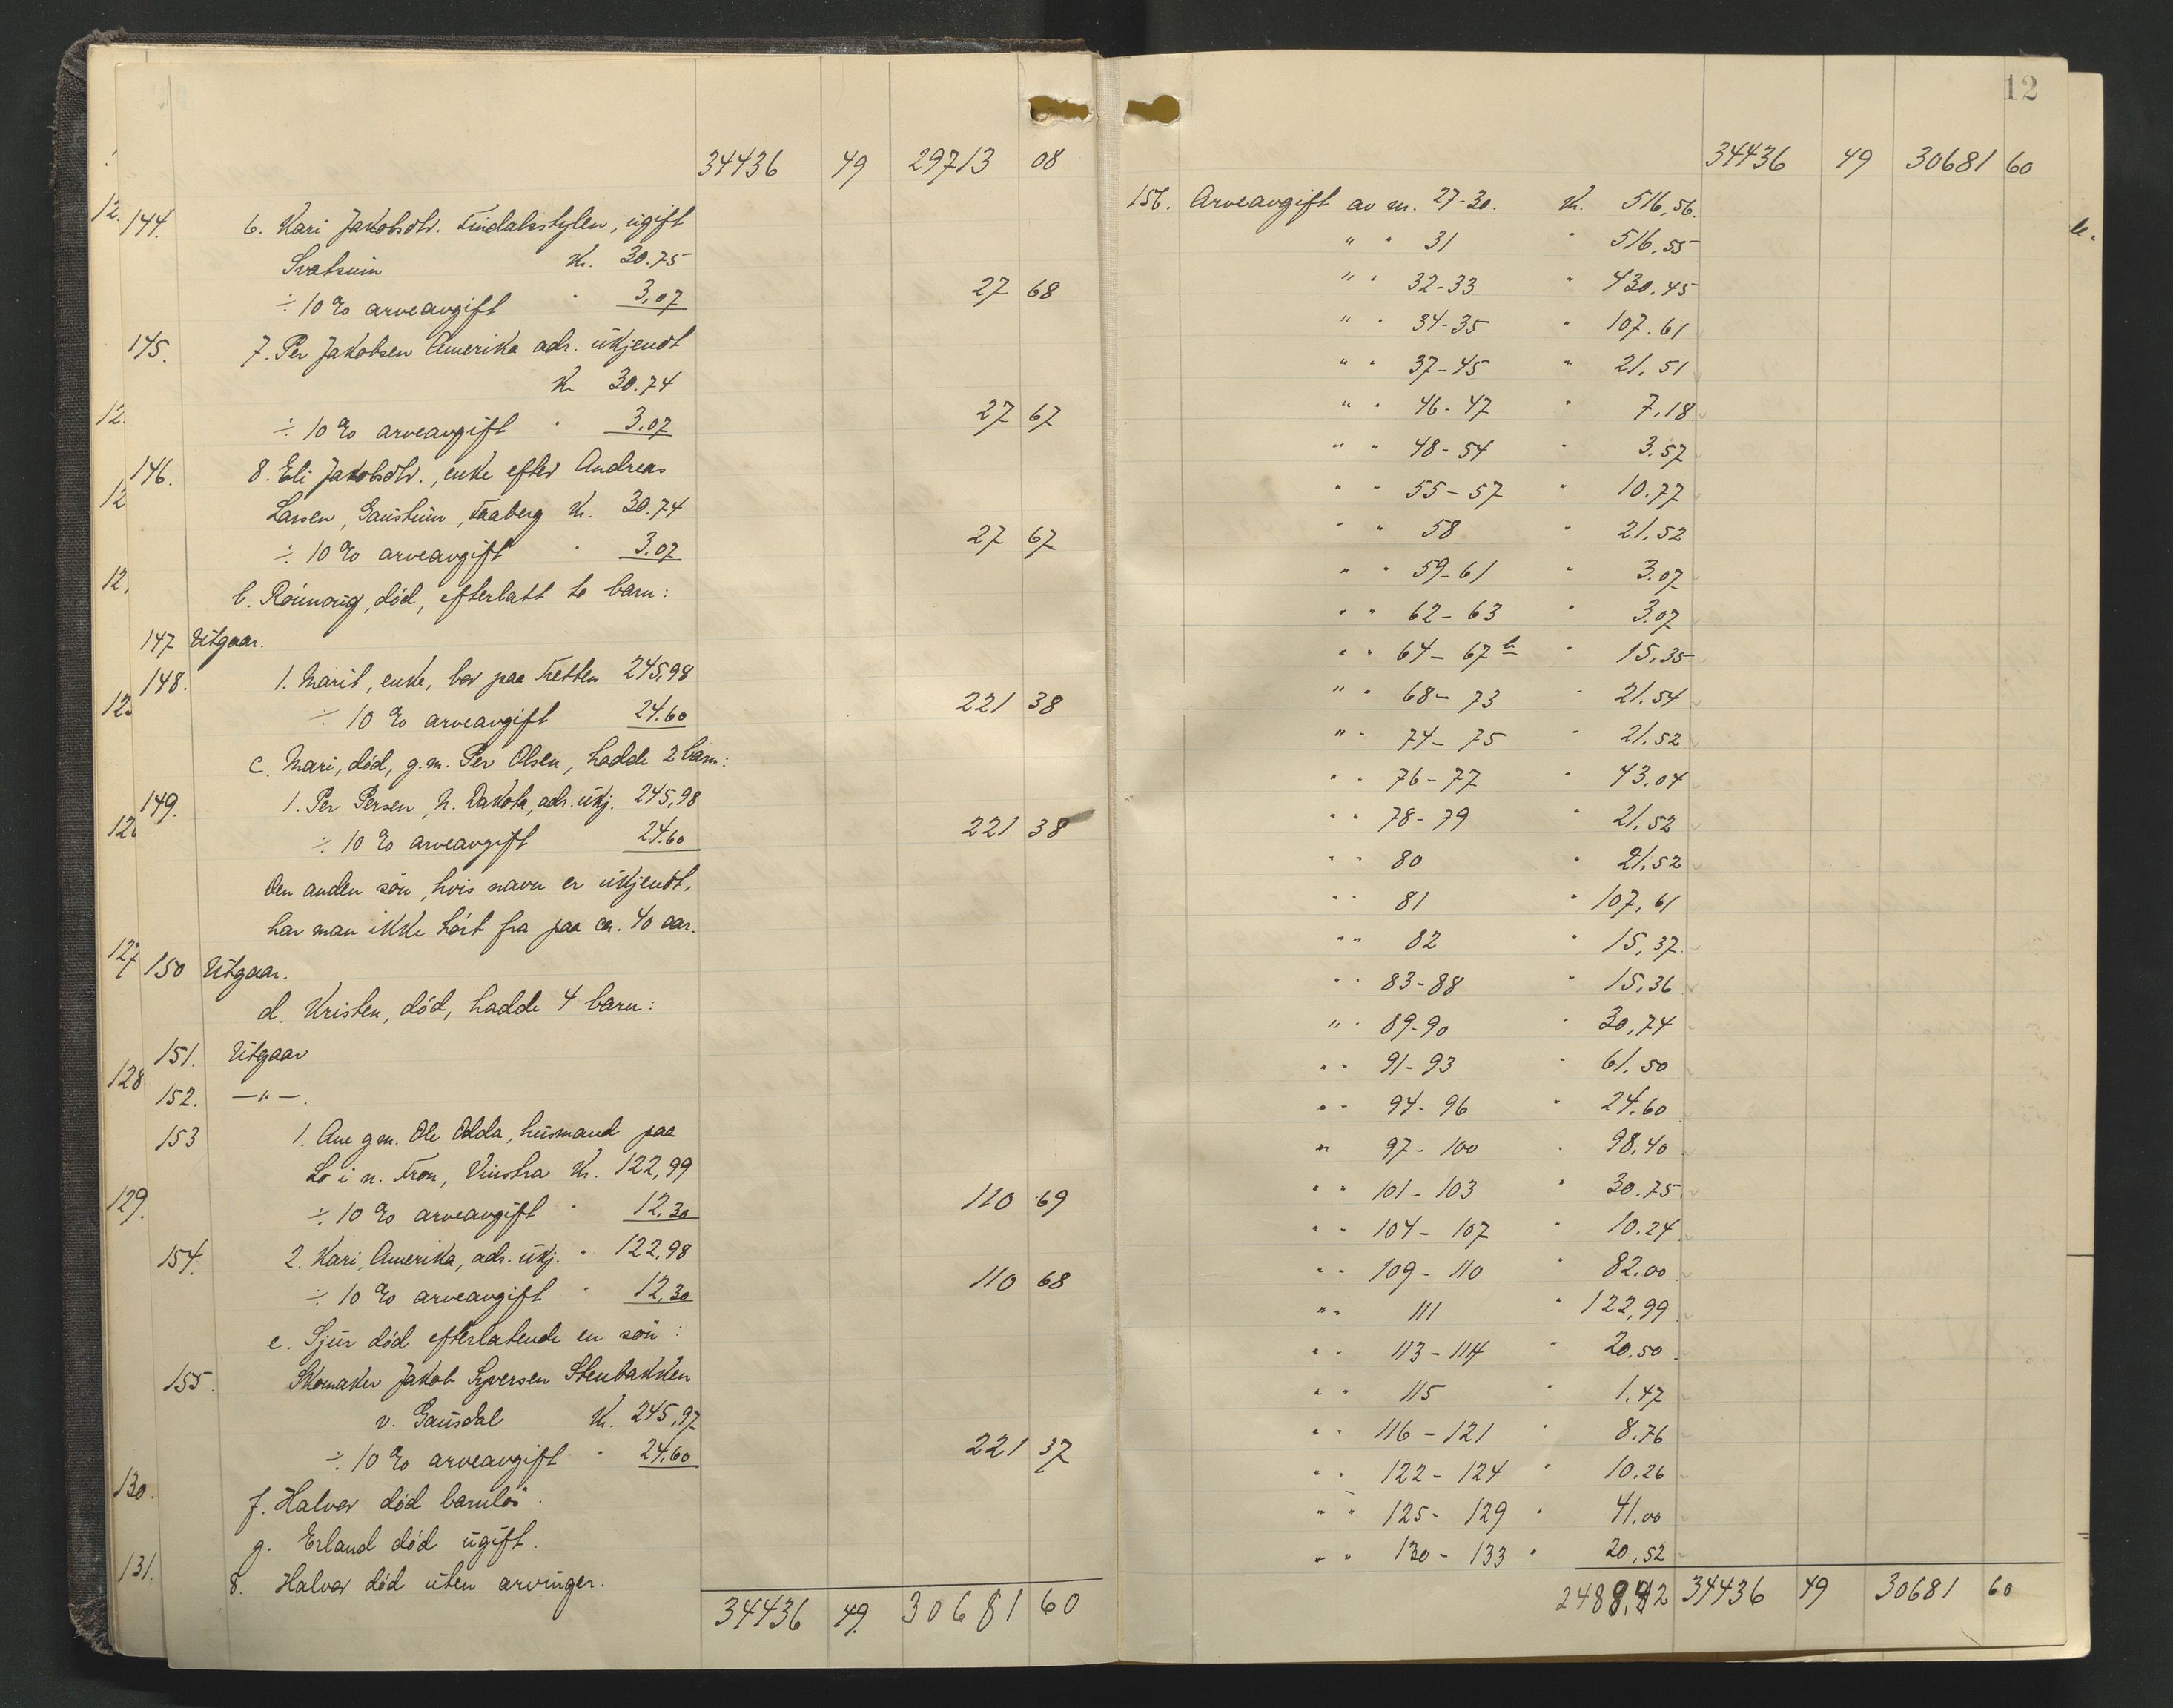 34436 49 29713 08
144. 6. Kari Jakobsdtr. Findalsstylen, ugift
Svatsum Kr. 30.75
÷ 10 % arveavgift " 3,07 27 68
145. 7. Per Jakobsen Amerika adr. ukjendt
Kr 30.74
÷ 10 % arveavgift " 3.07 27 67
146. 8. Eli Jakobsdtr., enke efter Andreas
Larsen, Gaustum, Faaberg Kr. 30.74
÷ 10 % arveavgift " 3.07 27 67
b. Rønnoug, død, efterlatt to barn:
147 Utgaar.
148. 1. Marit, enke, bor paa Tretten 245,98
÷ 10 % arveavgift 24.60 221 38
c. Mari, død, g.m. Per Olsen, hadde 2 barn:
149. 1. Per Persen, N. Dakota, adr. ukj. 245,98
÷ 10 % arveavgift 24.60 221 38
Den anden søn, hvis navn er ukjendt,
har man ikke hørt fra paa ca. 40 aar.
150 Utgaar.
d. Kristen, død, hadde 4 barn:
151. Utgaar
152. —"—.
153 1. Ane g.m. Ole Odda, husmand paa
Lo i n. Fron, Vinstra Kr. 122,99
÷ 10 % arveavgift " 12,30 110 69
154. 2. Kari, Amerika, adr. ukj. " 122,98
÷ 10 % arveavgift " 12,30 110 68
e. Sjur død efterlatende en søn:
155. Skomaker Jakob Syversen Stenbakken
v. Gausdal Kr. 245,97
÷ 10 % arveavgift " 24,60 221 37
f. Halvor død barnløs.
g. Erland død ugift.
8. Halvor død uten arvinger.
34436 49. 30681 60
12.
12.
12
12.
127
128
129.
130.
131.
12
34436 49 30681 60
156. Arveavgift av nr. 27-30. Kr. 516,56.
" " 31 " 516,55
" " 32-33 " 430.45
" " 34-35 " 107.61
" " 37-45 " 21.51
" " 46-47 " 7.18
" " 48-54 " 3.57
" " 55-57 " 10.77
" " 58 " 21,52
" " 59-61 " 3.07
" " 62-63 " 3.07
" " 64-67 b " 15,35
" " 68-73 " 21.54
" " 74-75 " 21.52
" " 76-77 " 43.04
" " 78-79 " 21,52
" " 80 " 21,52
" " 81 " 107,61
" " 82 " 15,37
" " 83-88 " 15,36
" " 89-90 " 30,74
" " 91-93 " 61,50
" " 94-96 " 24.60
" " 97-100 " 98,40
" " 101-103 " 30.75
" " 104-107 " 10.24
" " 109-110 " 82.00
" " 111 " 122,99
" " 113-114 " 20.50
" " 115 " 1.47
" " 116-121 " 8.76
" " 122-124 " 10.26
" " 125-129 " 41,00
" " 130-133 " 20,52
34436 49 30681 60